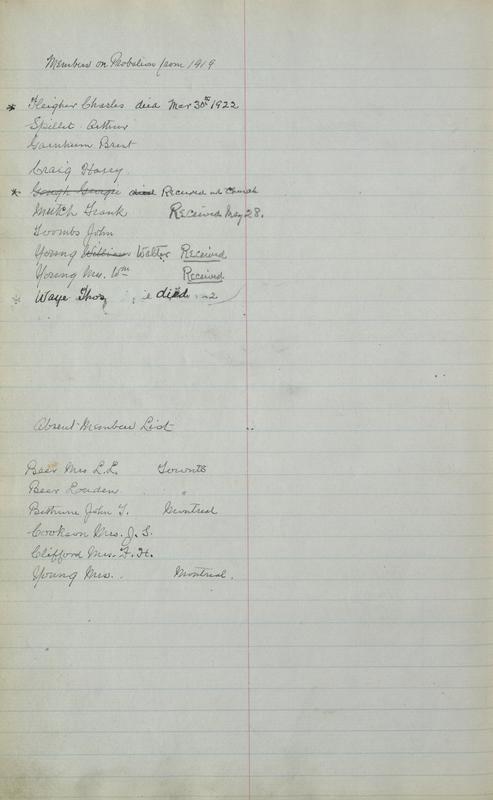 Members on Probation from 1919
* Fleigher Charles died Mar 30th 1922
Spillet Arthur
Garnhum Brent
Craig Harry
* Gough George died Received into Church
Mutch Frank Received May 28.
Toombs John
Young William Walter Received
Young Mrs. Wm Received
* Waye Thos died
Absent Member List
Beer Mrs L.L. Toronto
Beer Louden "
Bethune John T. Montreal
Cookson Mrs. J. S.
Clifford Mrs. F. H.
Young Mrs. Montreal.